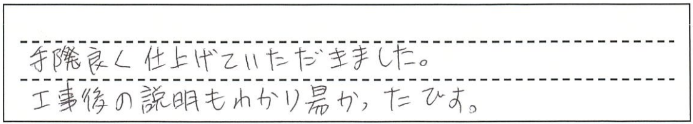 手際良く仕上げていただきました。
工事後の説明もわかり易かったです。